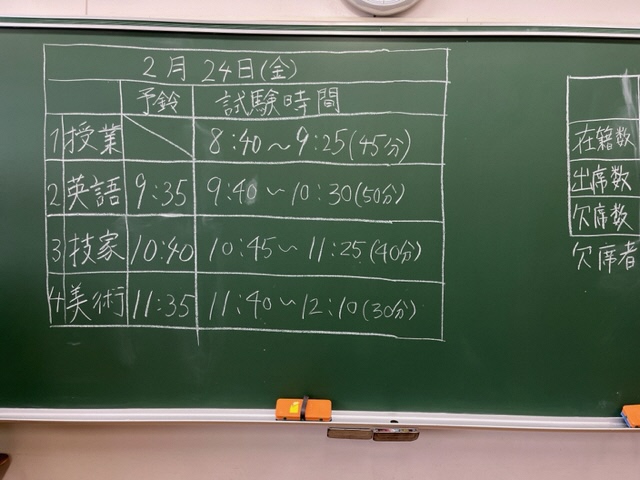 2月 24日(金)
予鈴 試験時間
1 授業 8:40〜9:25(45分)
2 英語 9:35 9:40〜10:30(50分)
3 技家 10:40 10:45〜11:25(40分)
4 美術 11:35 11:40〜12:10(30分)
在籍数
出席数
欠席数
欠席者